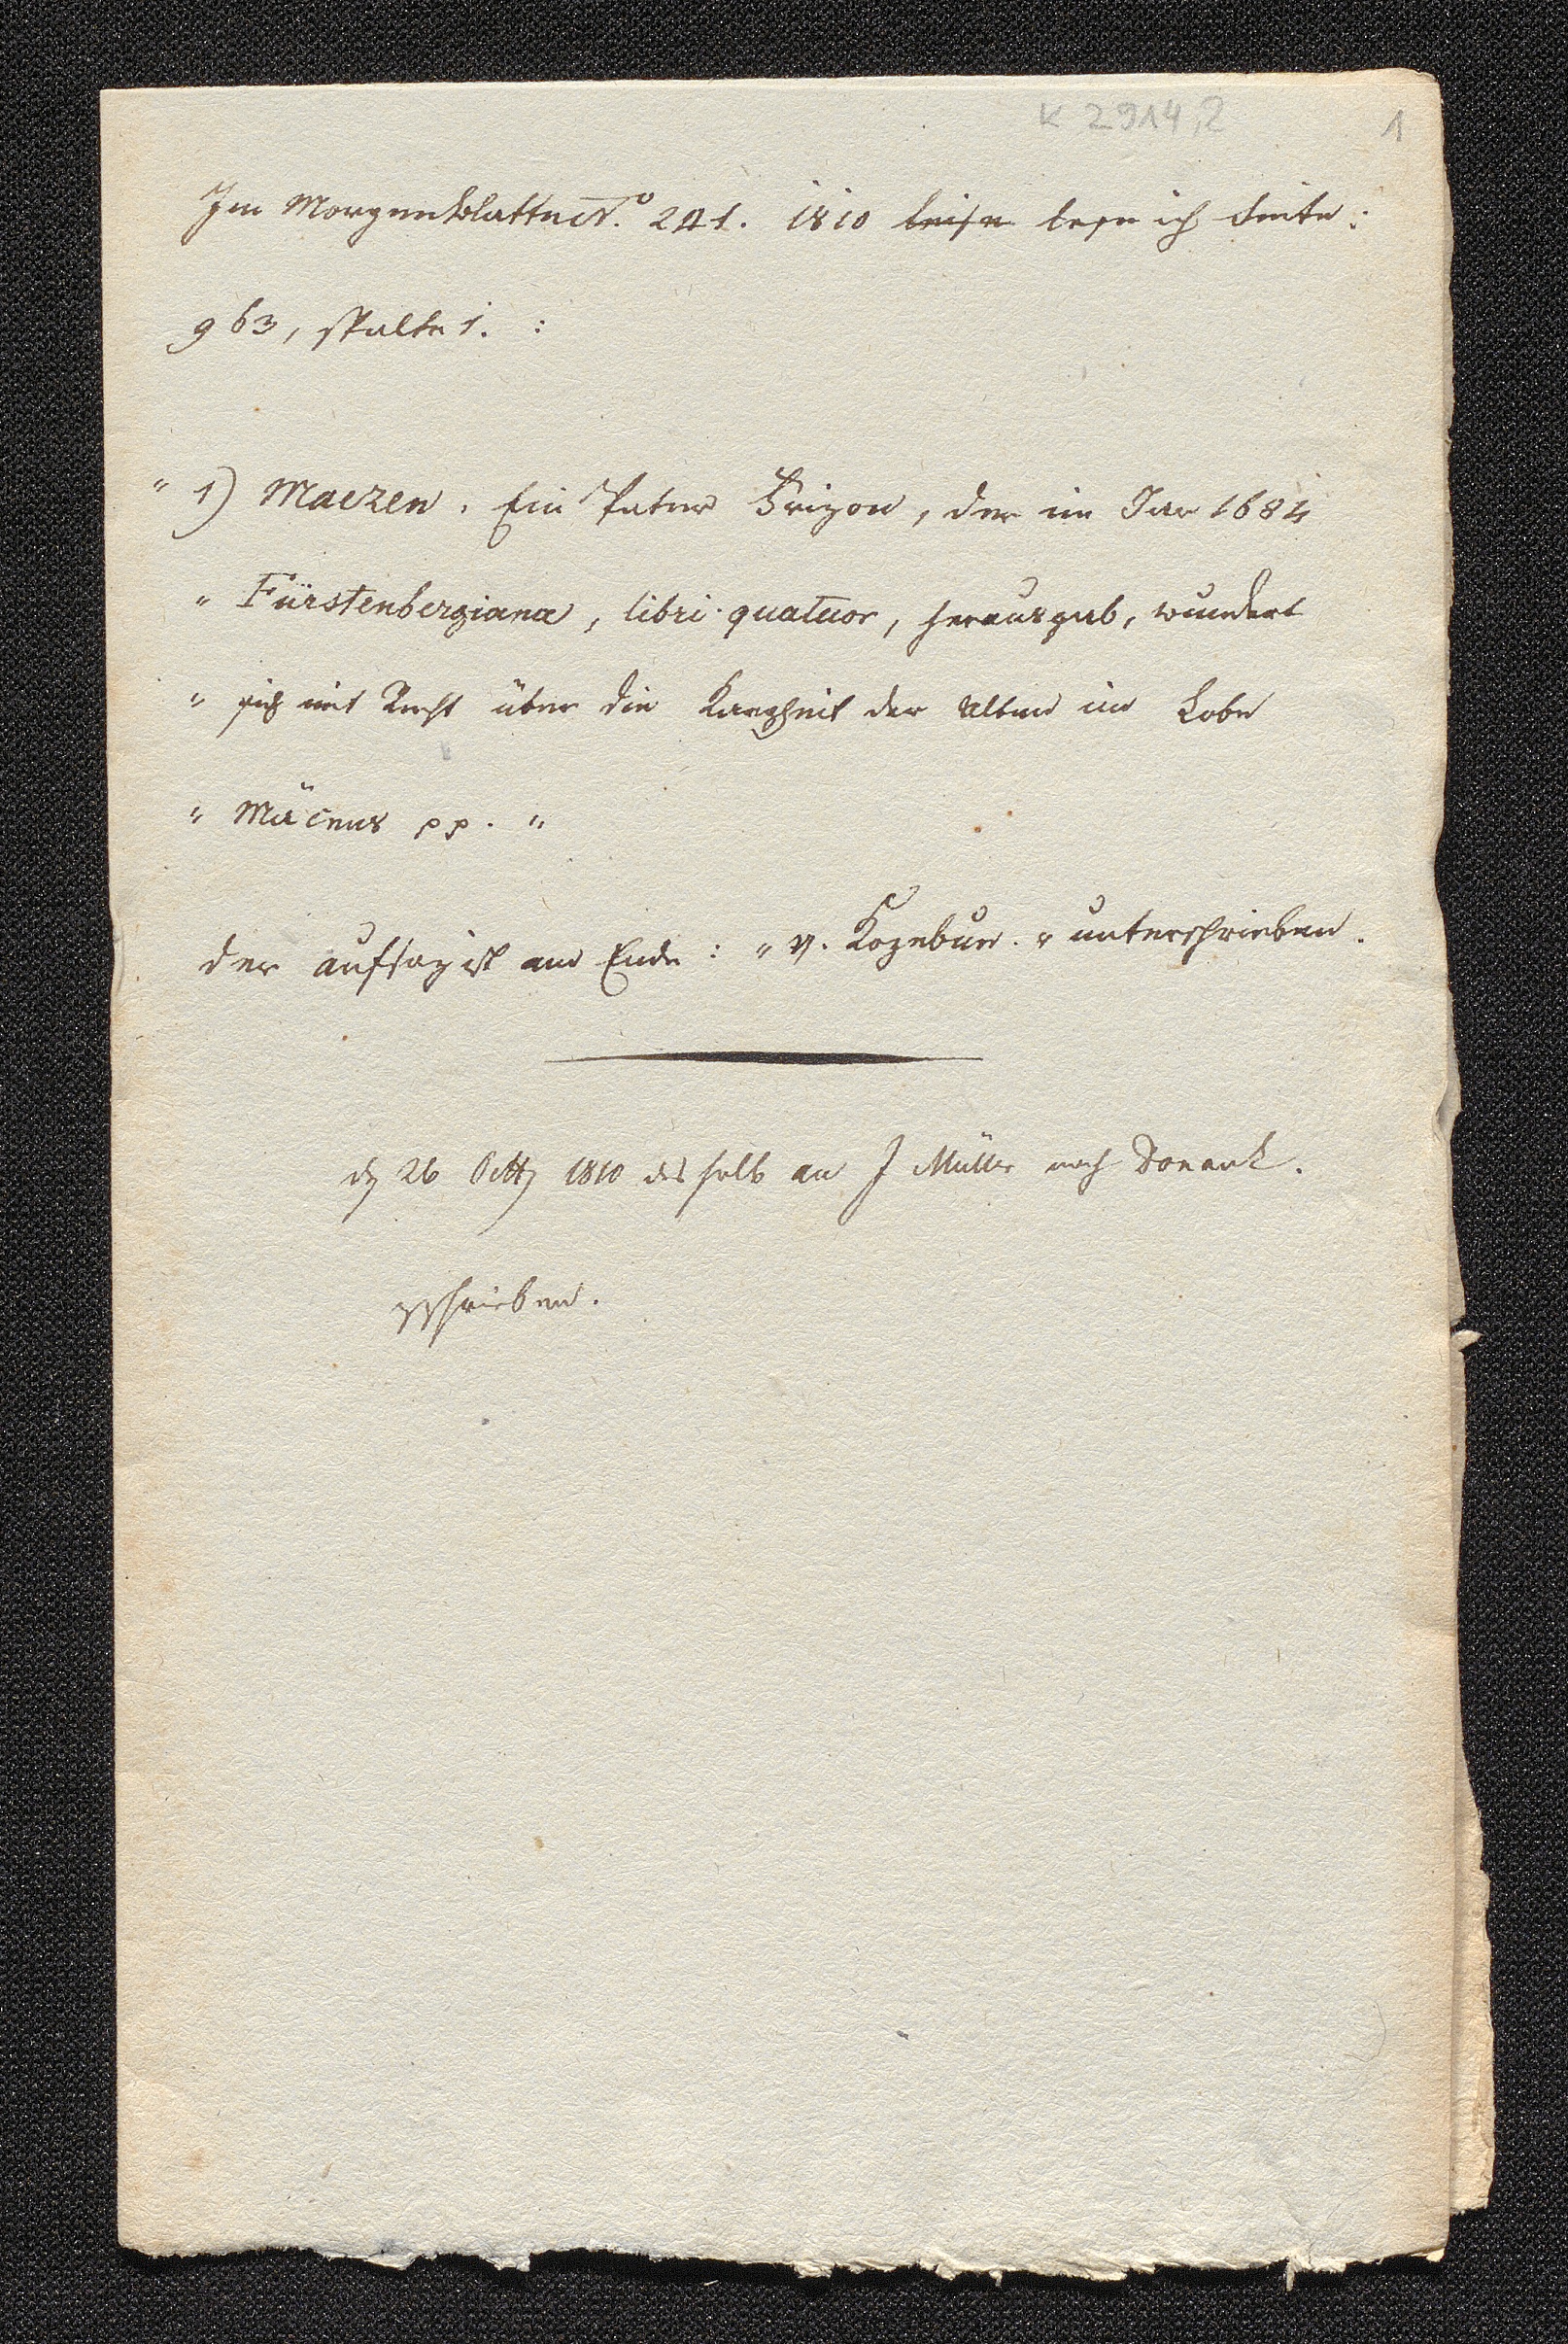 K 2914,2 1
Im Morgenblatte N.o 241. 1810 leise lese ich Seite:
963, Spalte 1. :
" 1) Maezen. Ein Pater Frizon, der im Jar 1684
" Fürstenbergiana, libri quatuor, herausgab, wundert
" sich mit Recht über die Kargheit der Alten im Lobe
" Mäcens pp. "
der Aufsaz ist am Ende: " v. Kozebue. " unterschrieben.
26 1810 deshalb an J Müller nach
geschrieben.